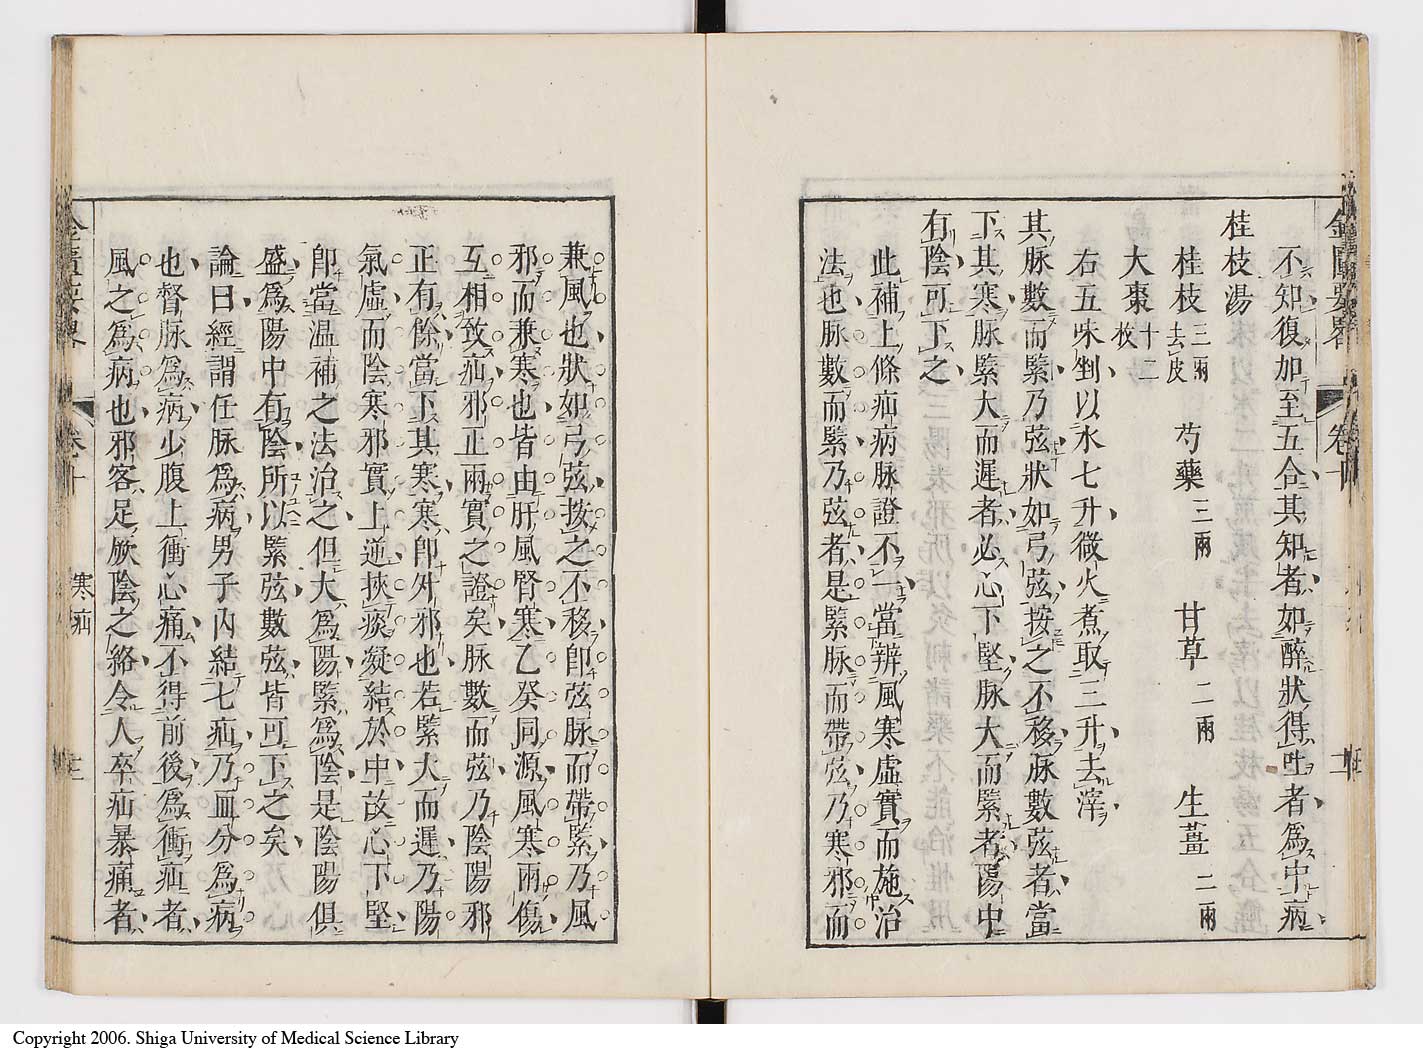 金匱要畧 卷十
不知復加至五合其知者如醉狀得吐者爲中病
桂枝湯
桂枝三兩去皮 芍藥三兩 甘草二兩 生薑二兩
大棗十二枚
右五味剉以水七升微火煮取三升去滓
其脉數而緊乃弦狀如弓弦按之不移脉數弦者當
下其寒脉緊大而遲者必心下堅脉大而緊者陽中
有陰可下之
此補上條疝病脉證不一當辨風寒虛實而施治
法也脉數而緊乃弦者是緊脉而帶弦乃寒邪而
兼風也狀如弓弦按之不移卽弦脉而帶緊乃風
邪而兼寒也皆由肝風腎寒乙癸同源風寒兩傷
互相致疝邪正兩實之證矣脉數而弦乃陰陽邪
正有餘當下其寒寒卽外邪也若緊大而遲乃陽
氣虛而陰寒邪實上逆挾痰凝結於中故心下堅
卽當温補之法治之但大爲陽緊爲陰是陰陽俱
盛爲陽中有陰所以緊弦數弦皆可下之矣
論曰經謂任脉爲病男子內結七疝乃血分爲病
也督脉爲病少腹上衝心痛不得前後爲衝疝者
風之爲病也邪客足厥陰之絡令人卒疝暴痛者
金匱要畧 卷十 寒疝
Copyright 2006. Shiga University of Medical Science Library